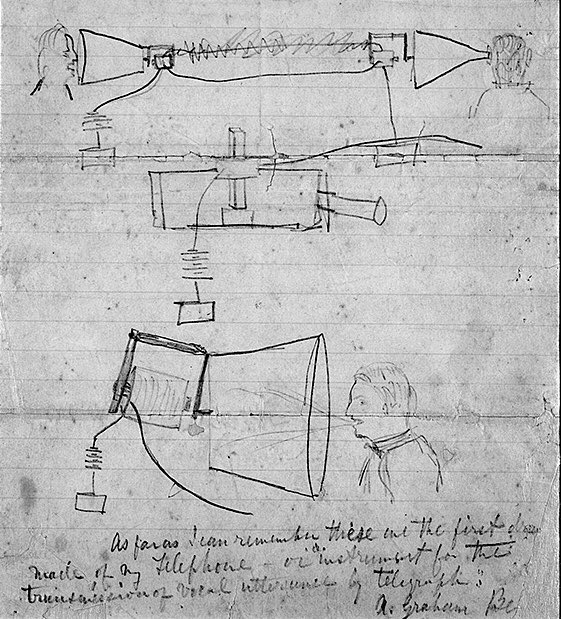 As far as I can remember these are the first
made of my Telephone - or "instrument for the
transmission of vocal utterance by telegraph":
A. Graham Be